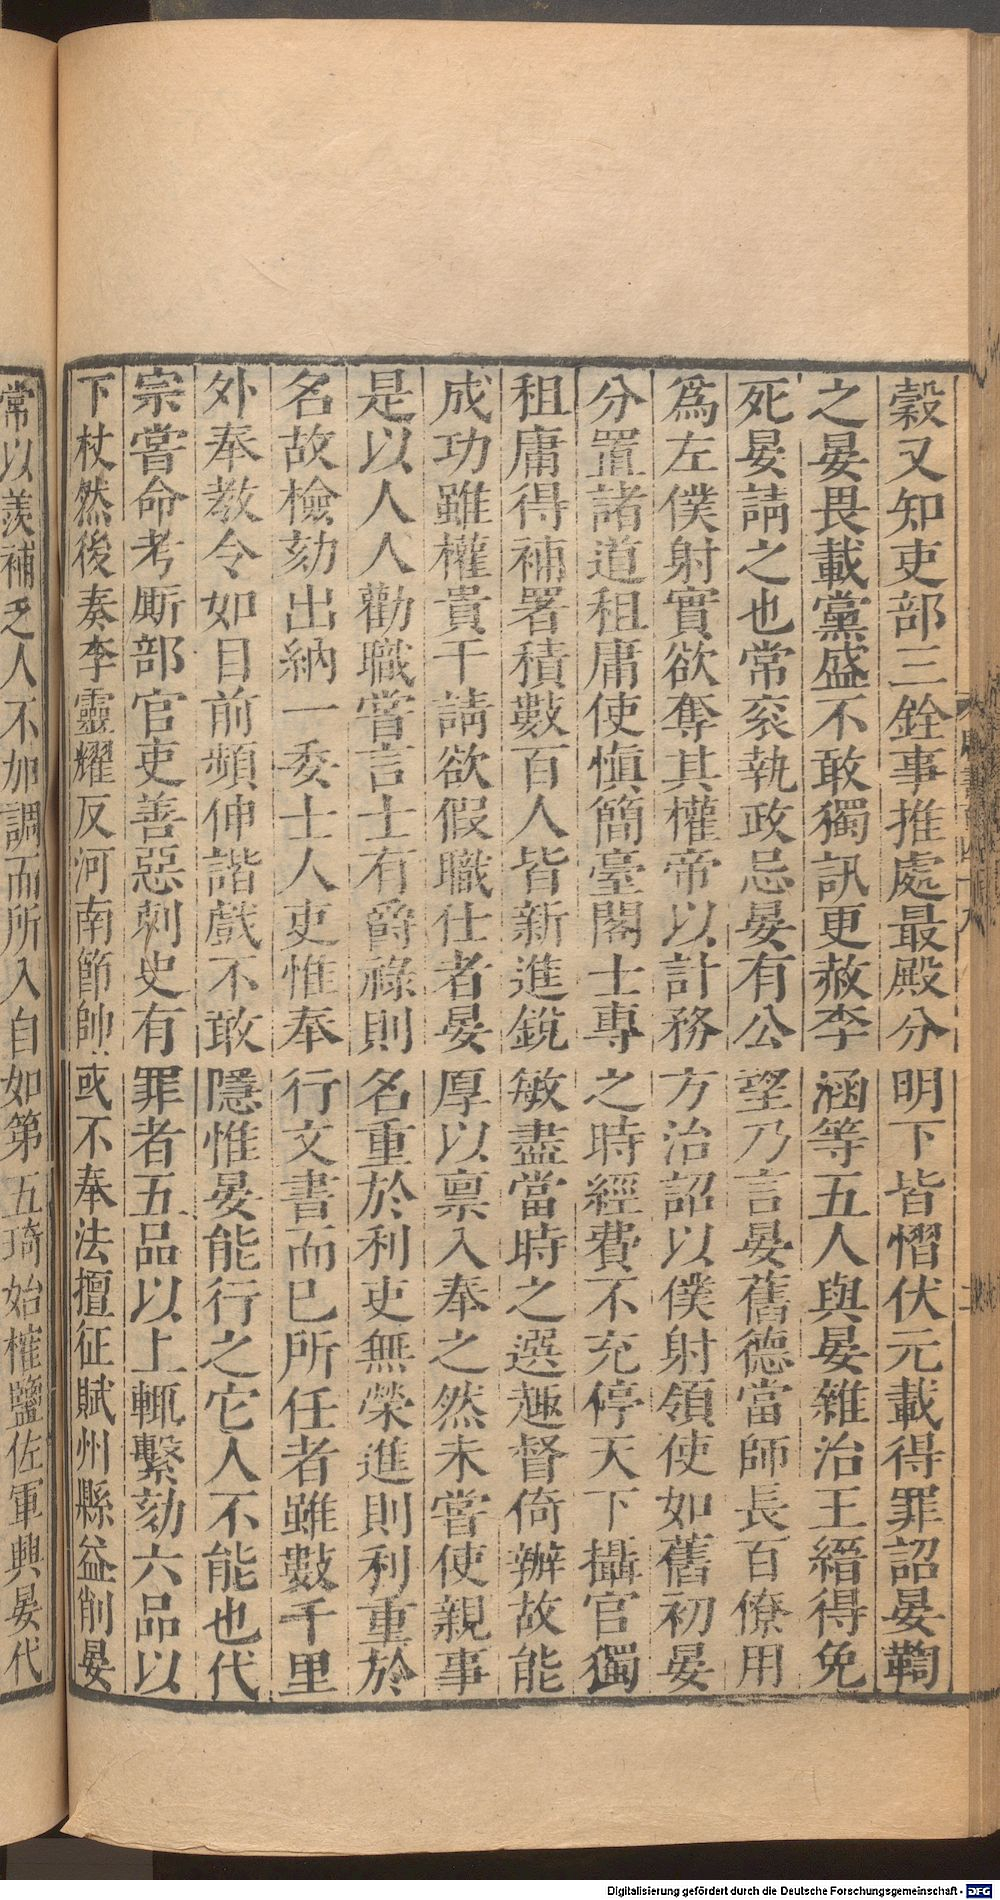 穀又知吏部三銓事推處最殿分明下皆慴伏元載得罪詔晏鞫
之晏畏載黨盛不敢獨訊更赦李涵等五人與晏雜治王縉得免
死晏請之也常衮執政忌晏有公望乃言晏舊德當師長百僚用
爲左僕射實欲奪其權帝以計務方治詔以僕射領使如舊初晏
分置諸道租庸使慎簡臺閣士專之時經費不充停天下攝官獨
租庸得補署積數百人皆新進銳敏盡當時之選趣督倚辦故能
成功雖權貴干請欲假職仕者晏厚以禀入奉之然未嘗使親事
是以人人勸職嘗言士有爵祿則名重於利吏無榮進則利重於
名故檢劾出納一委士人吏惟奉行文書而已所任者雖數千里
外奉教令如目前頻伸諧戲不敢隱惟晏能行之它人不能也代
宗嘗命考所部官吏善惡刺史有罪者五品以上輒繫劾六品以
下杖然後奏李靈耀反河南節帥或不奉法擅征賦州縣益削晏
常以羨補乏人不加調而所入自如第五琦始榷鹽佐軍興晏代
Digitalisierung gefördert durch die Deutsche Forschungsgemeinschaft - DFG